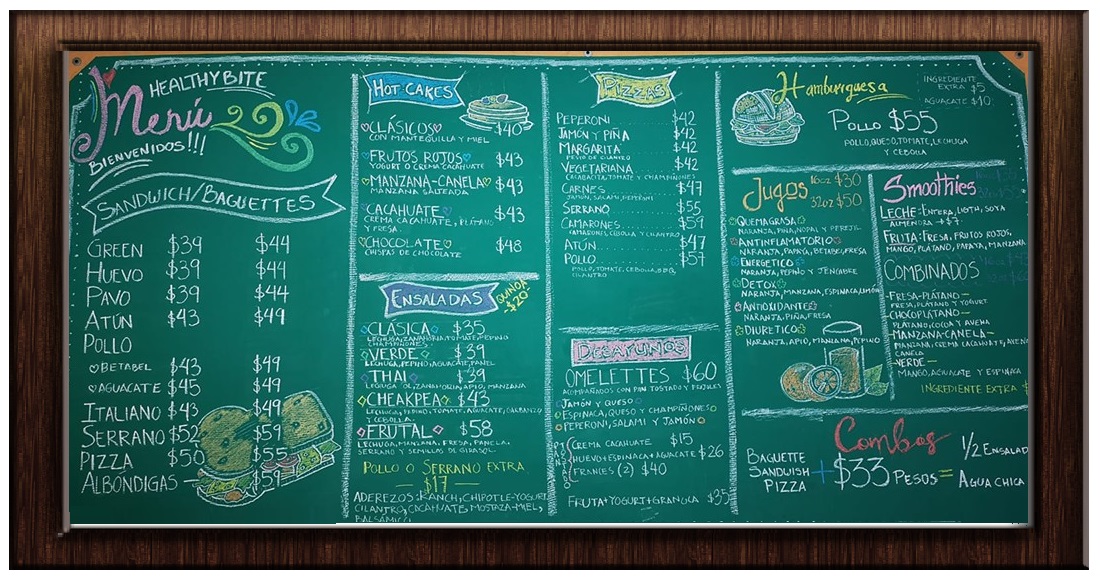 HEALTHYBITE
Menú
BIENVENIDOS!!!
SANDWICH/BAGUETTES
GREEN $39 $44
HUEVO $39 $44
PAVO $39 $44
ATÚN $43 $49
POLLO
BETABEL $43 $49
AGUACATE $45 $49
ITALIANO $43 $49
SERRANO $52 $59
PIZZA $50 $55
ALBÓNDIGAS - $59
HOT CAKES
CLÁSICOS $40
CON MANTEQUILLA Y MIEL
FRUTOS ROJOS $43
YOGURT O CREMA CACAHUATE
MANZANA-CANELA $43
MANZANA SALTEADA
CACAHUATE $43
CREMA CACAHUATE, PLÁTANO
Y FRESA
CHOCOLATE $48
CHISPAS DE CHOCOLATE
ENSALADAS
QUINOA
$20
CLÁSICA $35
LECHUGA, ZANAHORIA, TOMATE, PEPINO
CHAMPIÑONES
VERDE $39
LECHUGA, PEPINO, AGUACATE, PANELA
THAI $39
LECHUGA, COL, ZANAHORIA, APIO, MANZANA
CHEAKPEA $43
LECHUGA, PEPINO, TOMATE, AGUACATE, GARBANZO
Y CEBOLLA
FRUTAL $58
LECHUGA, MANZANA, FRESA, PANELA,
SERRANO Y SEMILLAS DE GIRASOL
POLLO O SERRANO EXTRA
— $17 —
ADEREZOS: RANCH, CHIPOTLE-YOGURT
CILANTRO, CACAHUATE, MOSTAZA-MIEL,
BALSÁMICO
PIZZAS
PEPERONI $42
JAMÓN Y PIÑA $42
MARGARITA $42
PESTO DE CILANTRO
VEGETARIANA $42
CALABACITA, TOMATE Y CHAMPIÑONES
CARNES $47
JAMÓN, SALAMI, PEPERONI
SERRANO $55
CAMARONES $59
CAMARONES, CEBOLLA Y CILANTRO
ATÚN $47
POLLO $57
POLLO, TOMATE, CEBOLLA, BBQ,
CILANTRO
DESAYUNOS
OMELETTES $60
ACOMPAÑADOS CON PAN TOSTADO Y FRIJOLES
JAMÓN Y QUESO
ESPINACA, QUESO Y CHAMPIÑONES
PEPERONI, SALAMI Y JAMÓN
CREMA CACAHUATE $15
HUEVO+ESPINACA+AGUACATE $26
FRANES (2) $40
FRUTA+YOGURT+GRANOLA $35
Hamburguesa
INGREDIENTE
EXTRA $5
AGUACATE $10
POLLO $55
POLLO, QUESO, TOMATE, LECHUGA
Y CEBOLLA
Jugos
16oz $30
32oz $50
QUEMAGRASA
NARANJA, PIÑA, NOPAL Y PEREJIL
ANTINFLAMATORIO
NARANJA, PAPAYA, BETABEL, FRESA
ENERGETICO
NARANJA, PEPINO Y JENGIBRE
DETOX
NARANJA, MANZANA, ESPINACA, LIMÓN
ANTIOXIDANTE
NARANJA, PIÑA, FRESA
DIURETICO
NARANJA, APIO, MANZANA, PEPINO
Smoothies
LECHE: ENTERA, LIGTH, SOYA
ALMENDRA +$7
FRUTA: FRESA, FRUTOS ROJOS,
MANGO, PLÁTANO, PAPAYA, MANZANA
COMBINADOS
-FRESA-PLÁTANO-
FRESA, PLÁTANO Y YOGURT
CHOCOPLÁTANO-
PLÁTANO, COCOA Y AVENA
-MANZANA-CANELA-
MANZANA, CREMA CACAHUATE, AVENA
CANELA
-VERDE-
MANGO, AGUACATE Y ESPINACA
INGREDIENTE EXTRA $
Combos
BAGUETTE
SANDUISH
PIZZA
+ $33 PESOS =
1/2 ENSALAD
AGUA CHICA